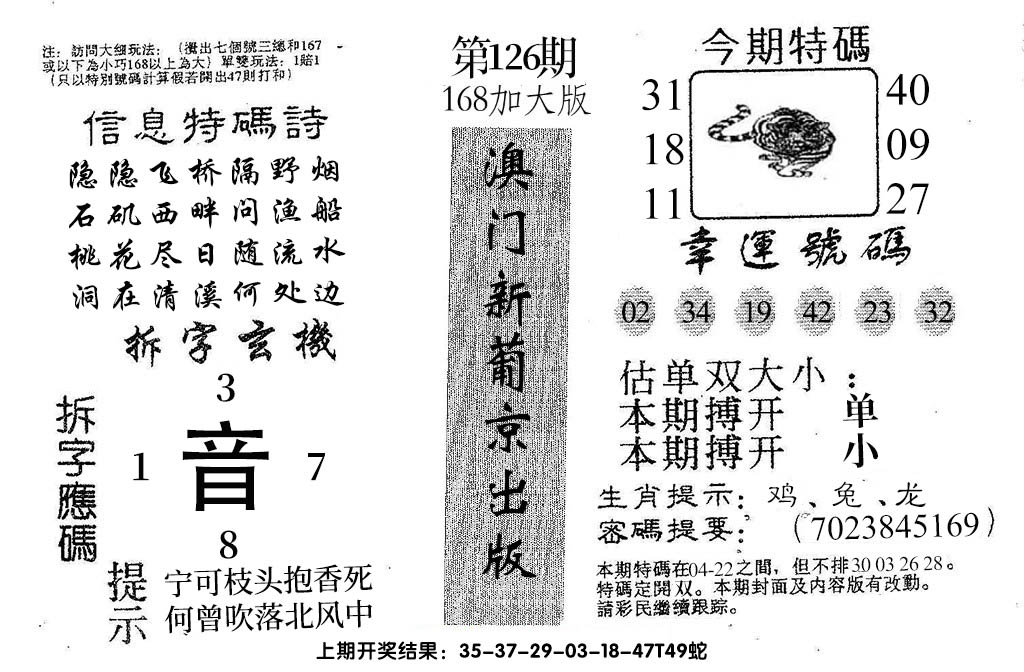 注：訪問大细玩法：（攪出七個號三總和167
或以下為小巧168以上為大）單雙玩法：1賠1
（只以特別號碼計算假若開出47則打和）
信息特碼詩
隐隐飞桥隔野烟
石矶西畔问渔船
桃花尽日随流水
洞在清溪何处边
拆字玄機
拆字應碼
3
1 音 7
8
提示
宁可枝头抱香死
何曾吹落北风中
第126期
168加大版
澳门新葡京出版
今期特碼
31 40
18 09
11 27
幸運號碼
02 34 19 42 23 32
估单双大小：
本期搏开 单
本期搏开 小
生肖提示：鸡、兔、龙
密碼提要：（7023845169）
本期特碼在04-22之間，但不排30 03 26 28。
特碼定開双。本期封面及内容版有改動。
請彩民繼續跟踪。
上期开奖结果：35-37-29-03-18-47T49蛇